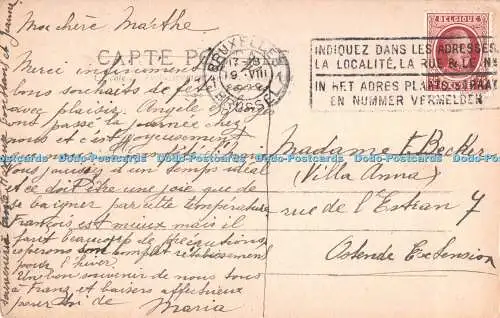 Ma chère Marthe
CARTE POSTALE
Merci infiniment de tes
bons souhaits de fête
avec plaisir. Angèle
ont passé la journée chez
nous et c'est joyeusement
Vous jouissez d'un temps idéal
et ce doit être une joie que de
se baigner par cette température
François est mieux mais il
faut beaucoup de précautions
espérons son complet rétablissement
pour l'hiver.
Une bon souvenir de nous tous
à Franz et baisers affectueux
pour toi de
Maria
BRUXELLES
9 VIII
BRUSSEL
INDIQUEZ DANS LES ADRESSES
LA LOCALITÉ, LA RUE & LE No
IN HET ADRES PLAATS, STRAAT
EN NUMMER VERMELDEN
BELGIQUE
Madame F. Becker
(Villa Anna)
rue de l'Estran 7
Ostende Extension
Dodo-Postcards Dodo-Postcards Dodo-Postcards Dodo-Postcards